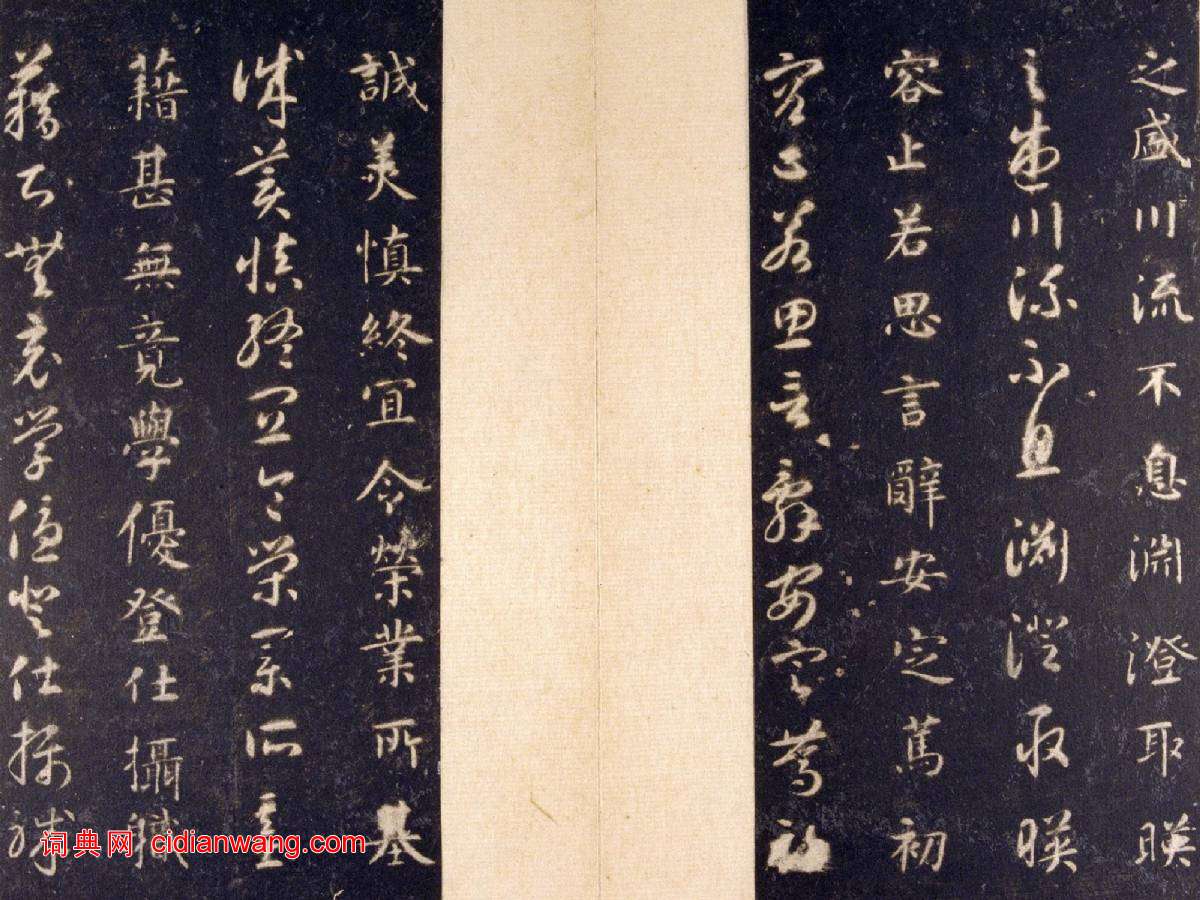 之盛川流不息淵澄取暎
之盛川流不息淵澄取暎
容止若思言辭安定篤初
容止若思言辭安定篤初
誠美慎終宜令榮業所基
誠美慎終宜令榮業所基
藉甚無竟學優登仕攝職
藉甚無竟學優登仕攝職
词典网 cidianwang.com